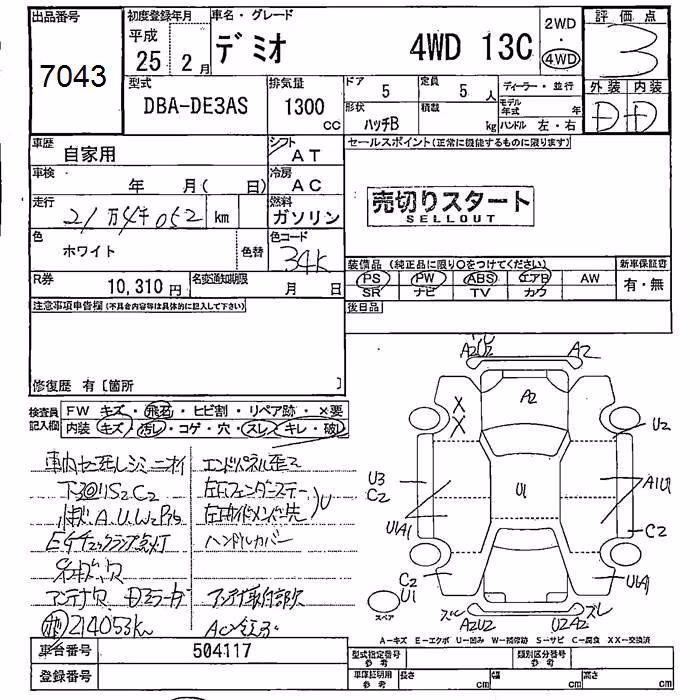 出品番号
7043
初度登録年月
平成
25年2月
車名・グレード
デミオ 4WD 13C
2WD
・
4WD
評価点
3
型式
DBA-DE3AS
排気量
1300
cc
ドア
5
定員
5人
形状
ハッチB
積載
kg
ディーラー・並行
モデル年式 年
ハンドル 左・右
外装 内装
D D
車歴
自家用
シフト
AT
車検
年 月( 日)
冷房
AC
走行
21万4千052 km
燃料
ガソリン
色
ホワイト
色替
色コード
34K
R券
10,310円
名変通知期限
月 日
セールスポイント(正常に機能するものに限ります)
売切りスタート
SELLOUT
装備品 (純正品に限り○をつけてください)
新車保証書
PS PW ABS エアB AW
有・無
SR ナビ TV カワ
後日品
注意事項申告欄(不具合内容等は具体的に記入して下さい)
修復歴 有〔箇所 〕
検査員記入欄
FW キズ・飛石・ヒビ割・リペア跡・×要
内装 キズ・汚レ・コゲ・穴・スレ・キレ・破レ
エンドパネル歪ミ
下回リS2C2
A.U.W2
ハンドルカバー
アンテナ欠
アンテナ取付部欠
214053km
A2U2 A2
A2
X
X
U2
U3
C2
U1
A1U1
U1A1
C2
C2
U1
U1A1
スペア
ズレ
ズレ
A2U2
U2A2
A－キズ E－エクボ U－凹み W－補修跡 S－サビ C－腐食 XX－交換済
車台番号
504117
登録番号
型式指定番号
参考
類別区分番号
参考
車庫証明用
参考
長さ cm
幅 cm
高さ cm